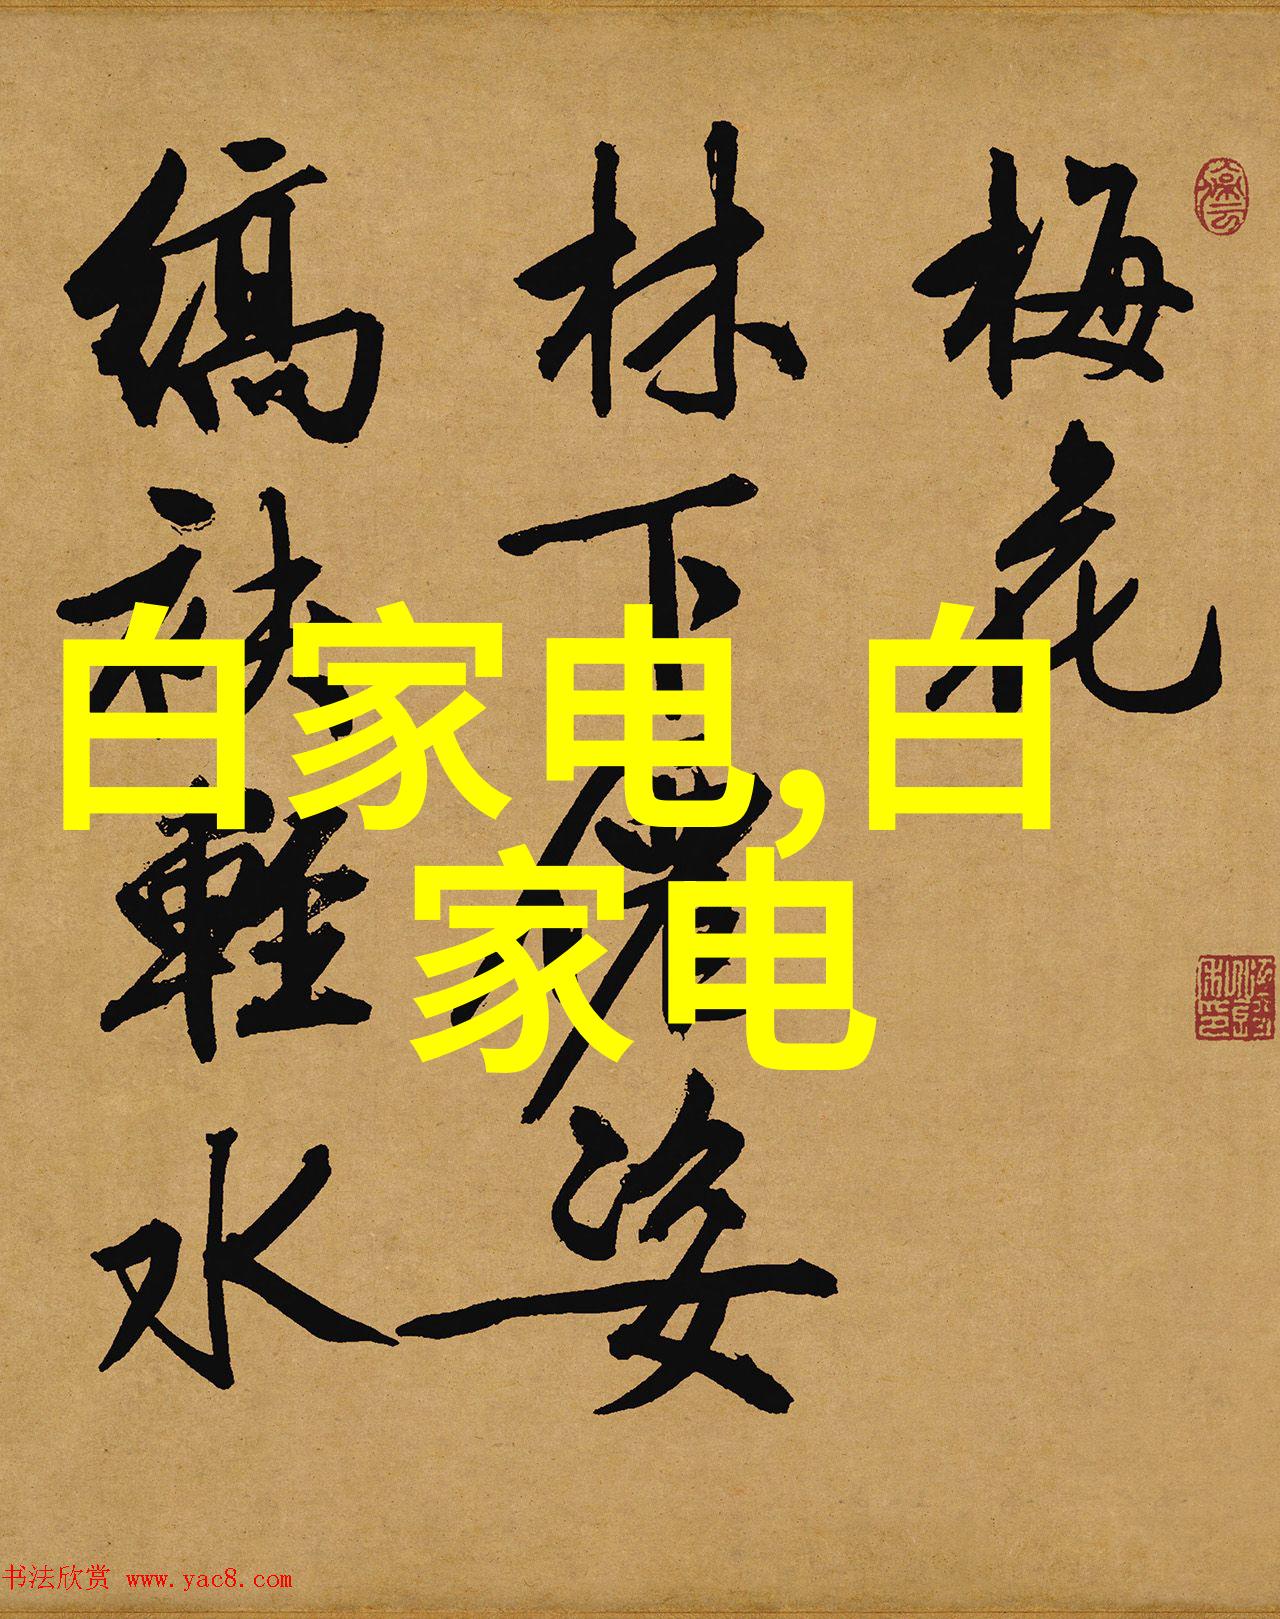 梅花
林下姿
縞袂輕水
白家电,白
家电
书法欣赏 www.yac8.com